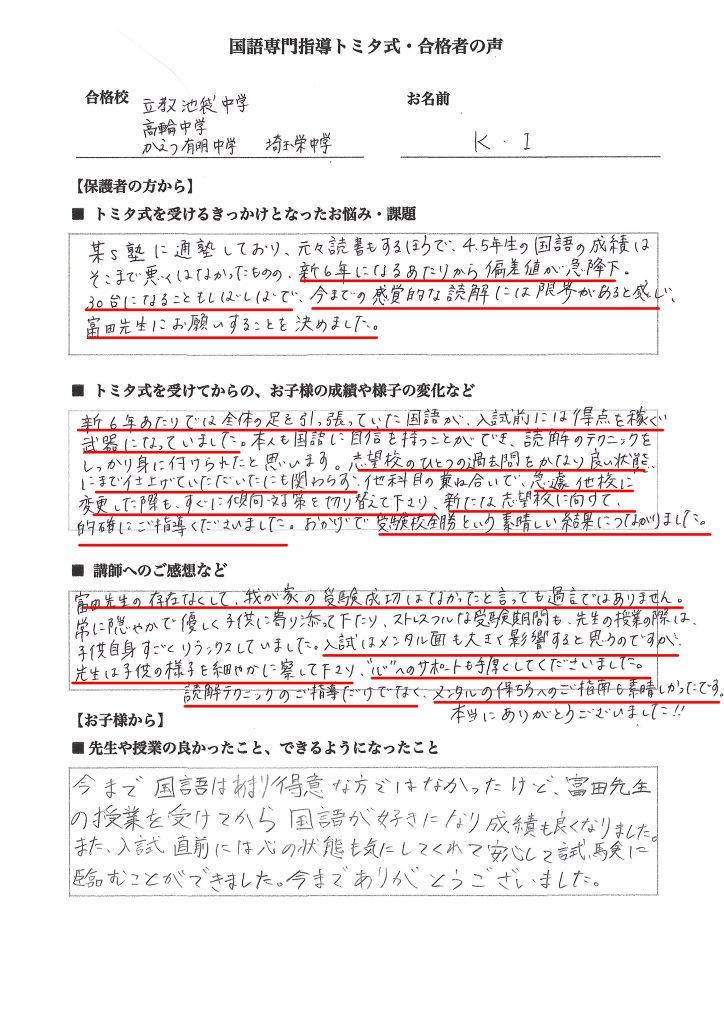 国語専門指導トミタ式・合格者の声
合格校
立教池袋中学
高輪中学
かえつ有明中学 埼玉栄中学
お名前
K・I
【保護者の方から】
■ トミタ式を受けるきっかけとなったお悩み・課題
某s塾に通塾しており、元々読書もするほうで、4.5年生の国語の成績は
そこまで悪くはなかったものの、新6年になるあたりから偏差値が急降下。
30台になることもしばしばで、今までの感覚的な読解には限界があると感じ、
富田先生にお願いすることを決めました。
■ トミタ式を受けてからの、お子様の成績や様子の変化など
新6年あたりでは全体の足を引っ張っていた国語が、入試前には得点を稼ぐ
武器になっていました。本人も国語に自信を持つことができ、読解のテクニックを
しっかり身に付けられたと思います。志望校のひとつの過去問をかなり良い状態
にまで仕上げていただいたにも関わらず、他科目の兼ね合いで、急遽他校に
変更した際も、すぐに傾向・対策を切り替えて下さり、新たな志望校に向けて、
的確にご指導くださいました。おかげで受験校全勝という素晴しい結果につながりました。
■ 講師へのご感想など
富田先生の存在なくして、我が家の受験成功はなかったと言っても過言ではありません。
常に穏やかで優しく子供に寄り添って下さり、ストレスフルな受験期間も、先生の授業の際は、
子供自身すごくリラックスしていました。入試はメンタル面も大きく影響すると思うのですが、
先生は子供の様子を細やかに察して下さり、"心"へのサポートも手厚くしてくださいました。
読解テクニックのご指導だけでなく、メンタルの保ち方へのご指南も素晴しかったです。
本当にありがとうございました!!
【お子様から】
■ 先生や授業の良かったこと、できるようになったこと
今まで国語はあまり得意な方ではなかったけど、富田先生
の授業を受けてから国語が好きになり成績も良くなりました。
また、入試直前には心の状態も気にしてくれて安心して試験に
臨むことができました。今までありがとうございました。